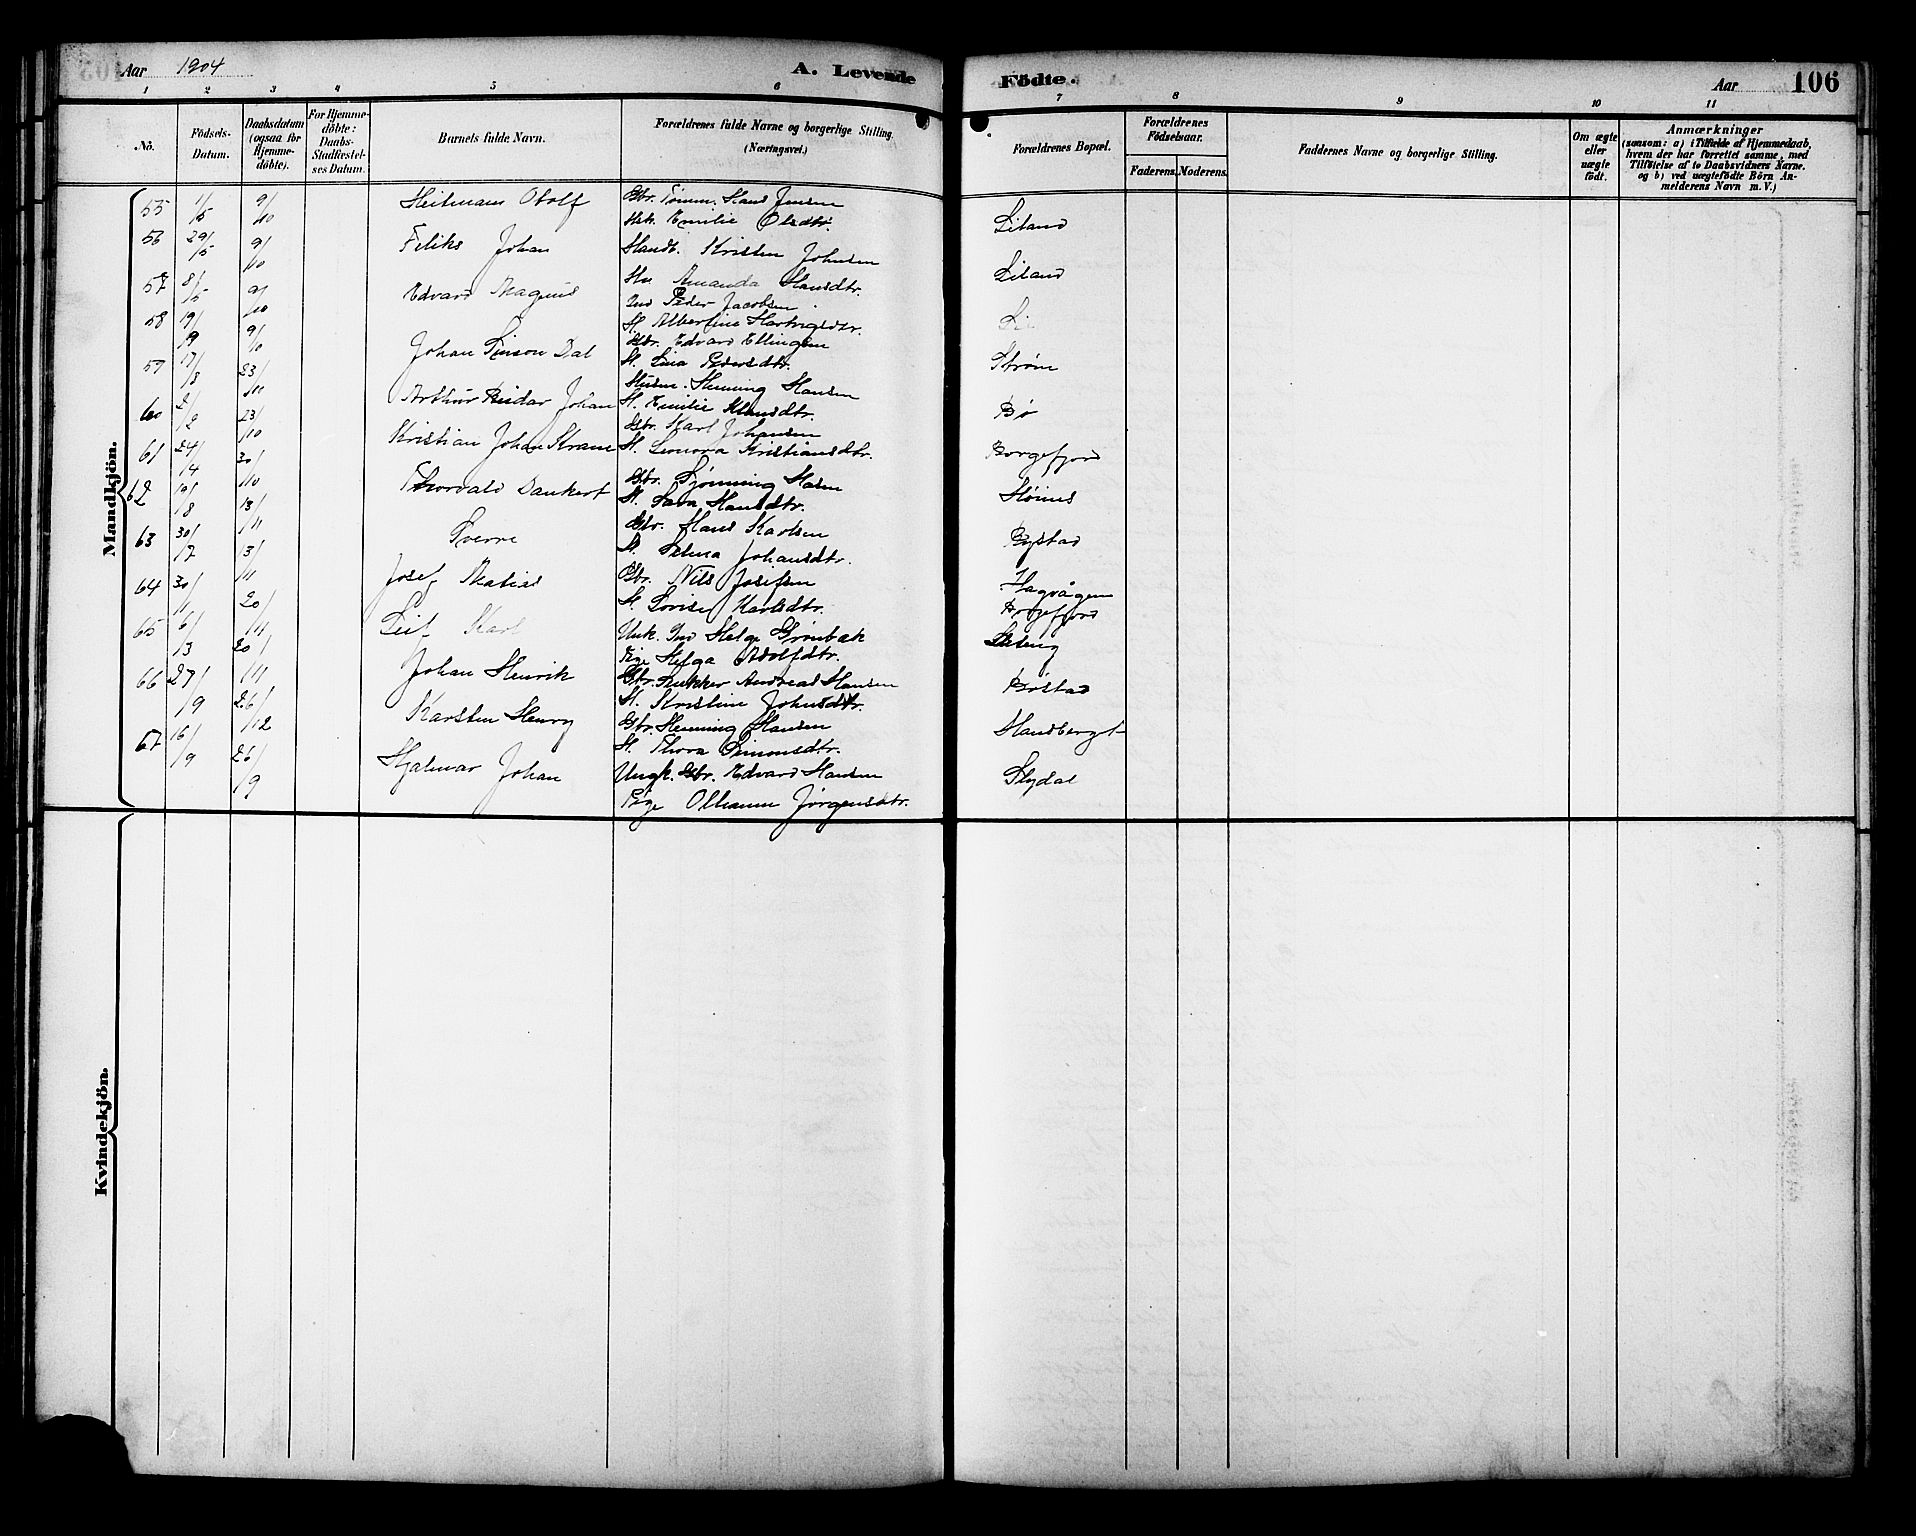 Aar 1904 A. Levende Födte. Aar 106
1 2 3 4 5 6 7 8 9 10 11
No. Födsels-Datum. Daabsdatum (ogsaa for Hjemmedöbte). For Hjemmedöbte: Daabs-Stadfæstelses Datum. Barnets fulde Navn. Forældrenes fulde Navne og borgerlige Stilling. (Næringsvei.) Forældrenes Bopæl. Forældrenes Födselsaar. Faderens. Moderens. Faddernes Navne og borgerlige Stilling. Om ægte eller uægte födt. Anmærkninger (saasom: a) i Tilfælde af Hjemmedaab, hvem der har forrettet samme, med Tilföielse af to Daabsvidners Navne. og b) ved uægtefödte Börn Anmelderens Navn m. V.)
Mandkjön.
55 1/5 9/10 Heitmann Obolf Gbr. Tømm. Hans Jensen
Hst. Emilie Olsdtr. Liland
56 29/5 9/10 Feliks Johan Handb. Kristen Johnsen
Hu. Amanda Hansdtr. Liland
57 8/5 9/10 Edvard Magnus Ind Peder Jacobsen
H. Albertine Hartvigsdtr. Li
58 19/9 9/10 Johan Simson Dal Gbr. Edvard Ellingsen
H. Lina Pedersdtr. Strøm
59 17/8 23/10 Arthur Reidar Johan Husm. Henning Hansen
H. Emilie Klausdtr. Bø
60 2/2 23/10 Kristian Johan Stram Gbr. Karl Johansen
H. Leonora Kristiansdtr. Borgefjord
61 24/4 30/10 Thorvald Dankert Gbr. Tjønning Hasen
H. Sara Hansdtr. Hønes
62 19/8 13/11 Sverre Gbr. Hans Karlsen
H. Selma Johansdtr. Bystad
63 30/7 13/11 Josef Matias Gbr. Nils Josefsen
H. Lovise Karlsdtr. Hagvågen
Borgefjord
64 30/1 20/11 Leif Karl Unk. Ind Helge Grønbæk
Pige Helga Adolfdtr. Skteng
65 6/3 20/11 Johan Henrik Gbr. Snekker Andreas Hansen
H. Kristine Johnsdtr. Bøstad
66 27/9 26/12 Karsten Henry Gbr. Henning Hansen
H. Thora Simonsdtr. Handbergt
67 16/9 26/9 Hjalmar Johan Ungk. Gbr. Edvard Hansen
Pige Olhanna Jørgensdtr. Slydal
Kvindekjön.